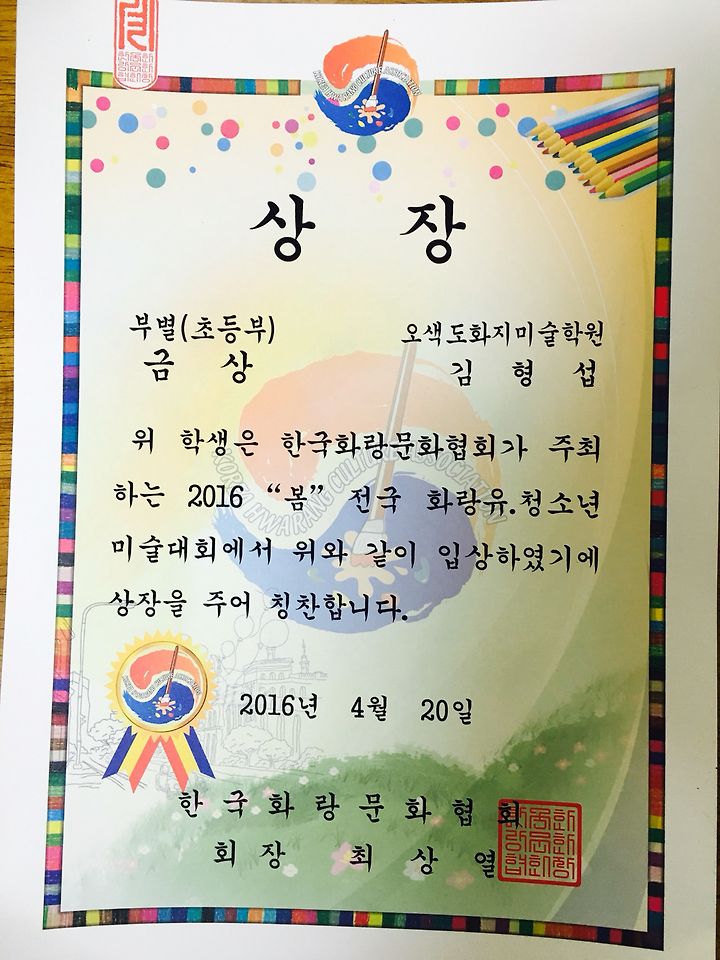 상 장
부별(초등부) 오색도화지미술학원
금 상 김 형 섭
위 학생은 한국화랑문화협회가 주최
하는 2016 “봄” 전국 화랑유.청소년
미술대회에서 위와 같이 입상하였기에
상장을 주어 칭찬합니다.
KOREA HWARANG CULTURE ASSOCIATION
2016년 4월 20일
한국화랑문화협회
회장 최 상 열